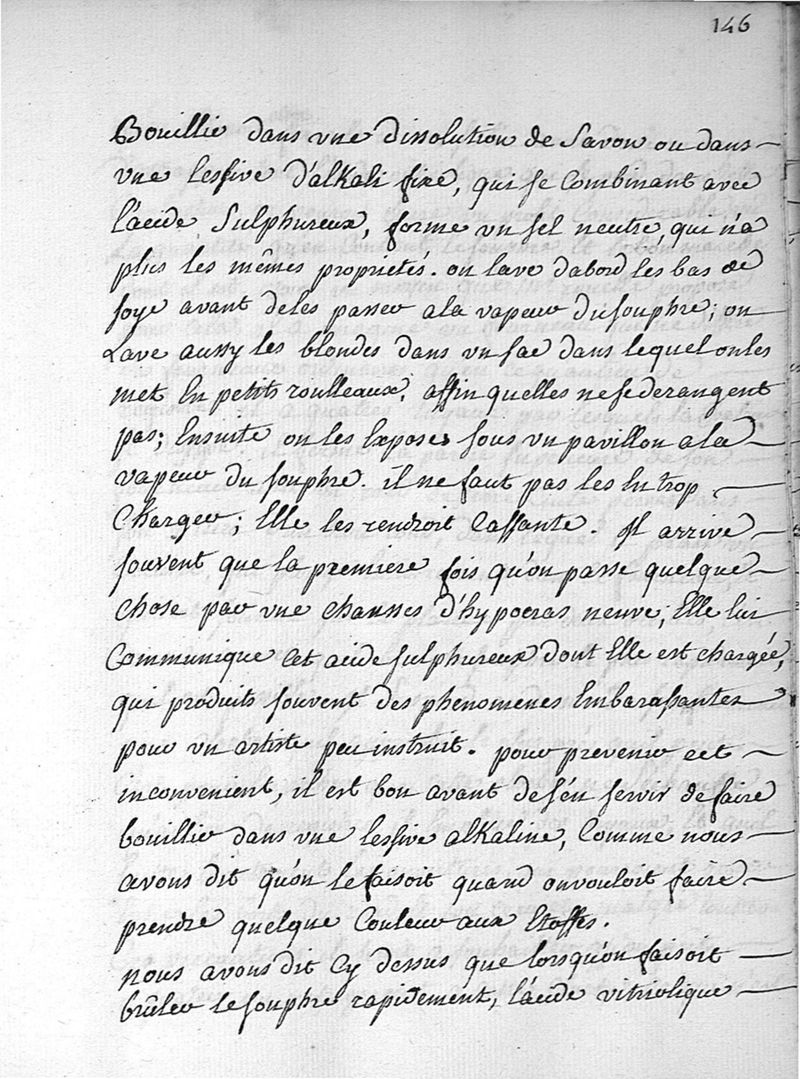 146
Bouillir dans une dissolution de Savon ou dans
une lessive d'alkali fixe, qui se Combinant avec
l'acide Sulphureux, forme un sel neutre, qui n'a
plus les mêmes proprietés. on lave d'abord les bas de
soye avant de les passer a la vapeur du souphre; on
Lave aussy les blondes dans un sac dans lequel on les
met En petits roulleaux, affin quelles ne se derangent
pas; Ensuite on les Expose sous un pavillon a la
vapeur du souphre. il ne faut pas les En trop
Charger; Elle les rendroit Cassante. Il arrive
souvent que la premiere fois qu'on passe quelque
chose par une chausses d'hypocras neuve; Elle lui
Communique Cet acide sulphureux dont Elle est chargée,
qui produits souvent des phenomenes Embarassantes
pour un artiste peu instruit. pour prevenir cet
inconvenient, il est bon avant de s'en servir de faire
bouillir dans une lessive alkaline, Comme nous
avons dit qu'on le faisoit quand on vouloit faire
prendre quelque Couleur aux Etoffes.
nous avons dit Cy dessus que lorsqu'on faisoit
brûler le souphre rapidement, l'acide vitriolique